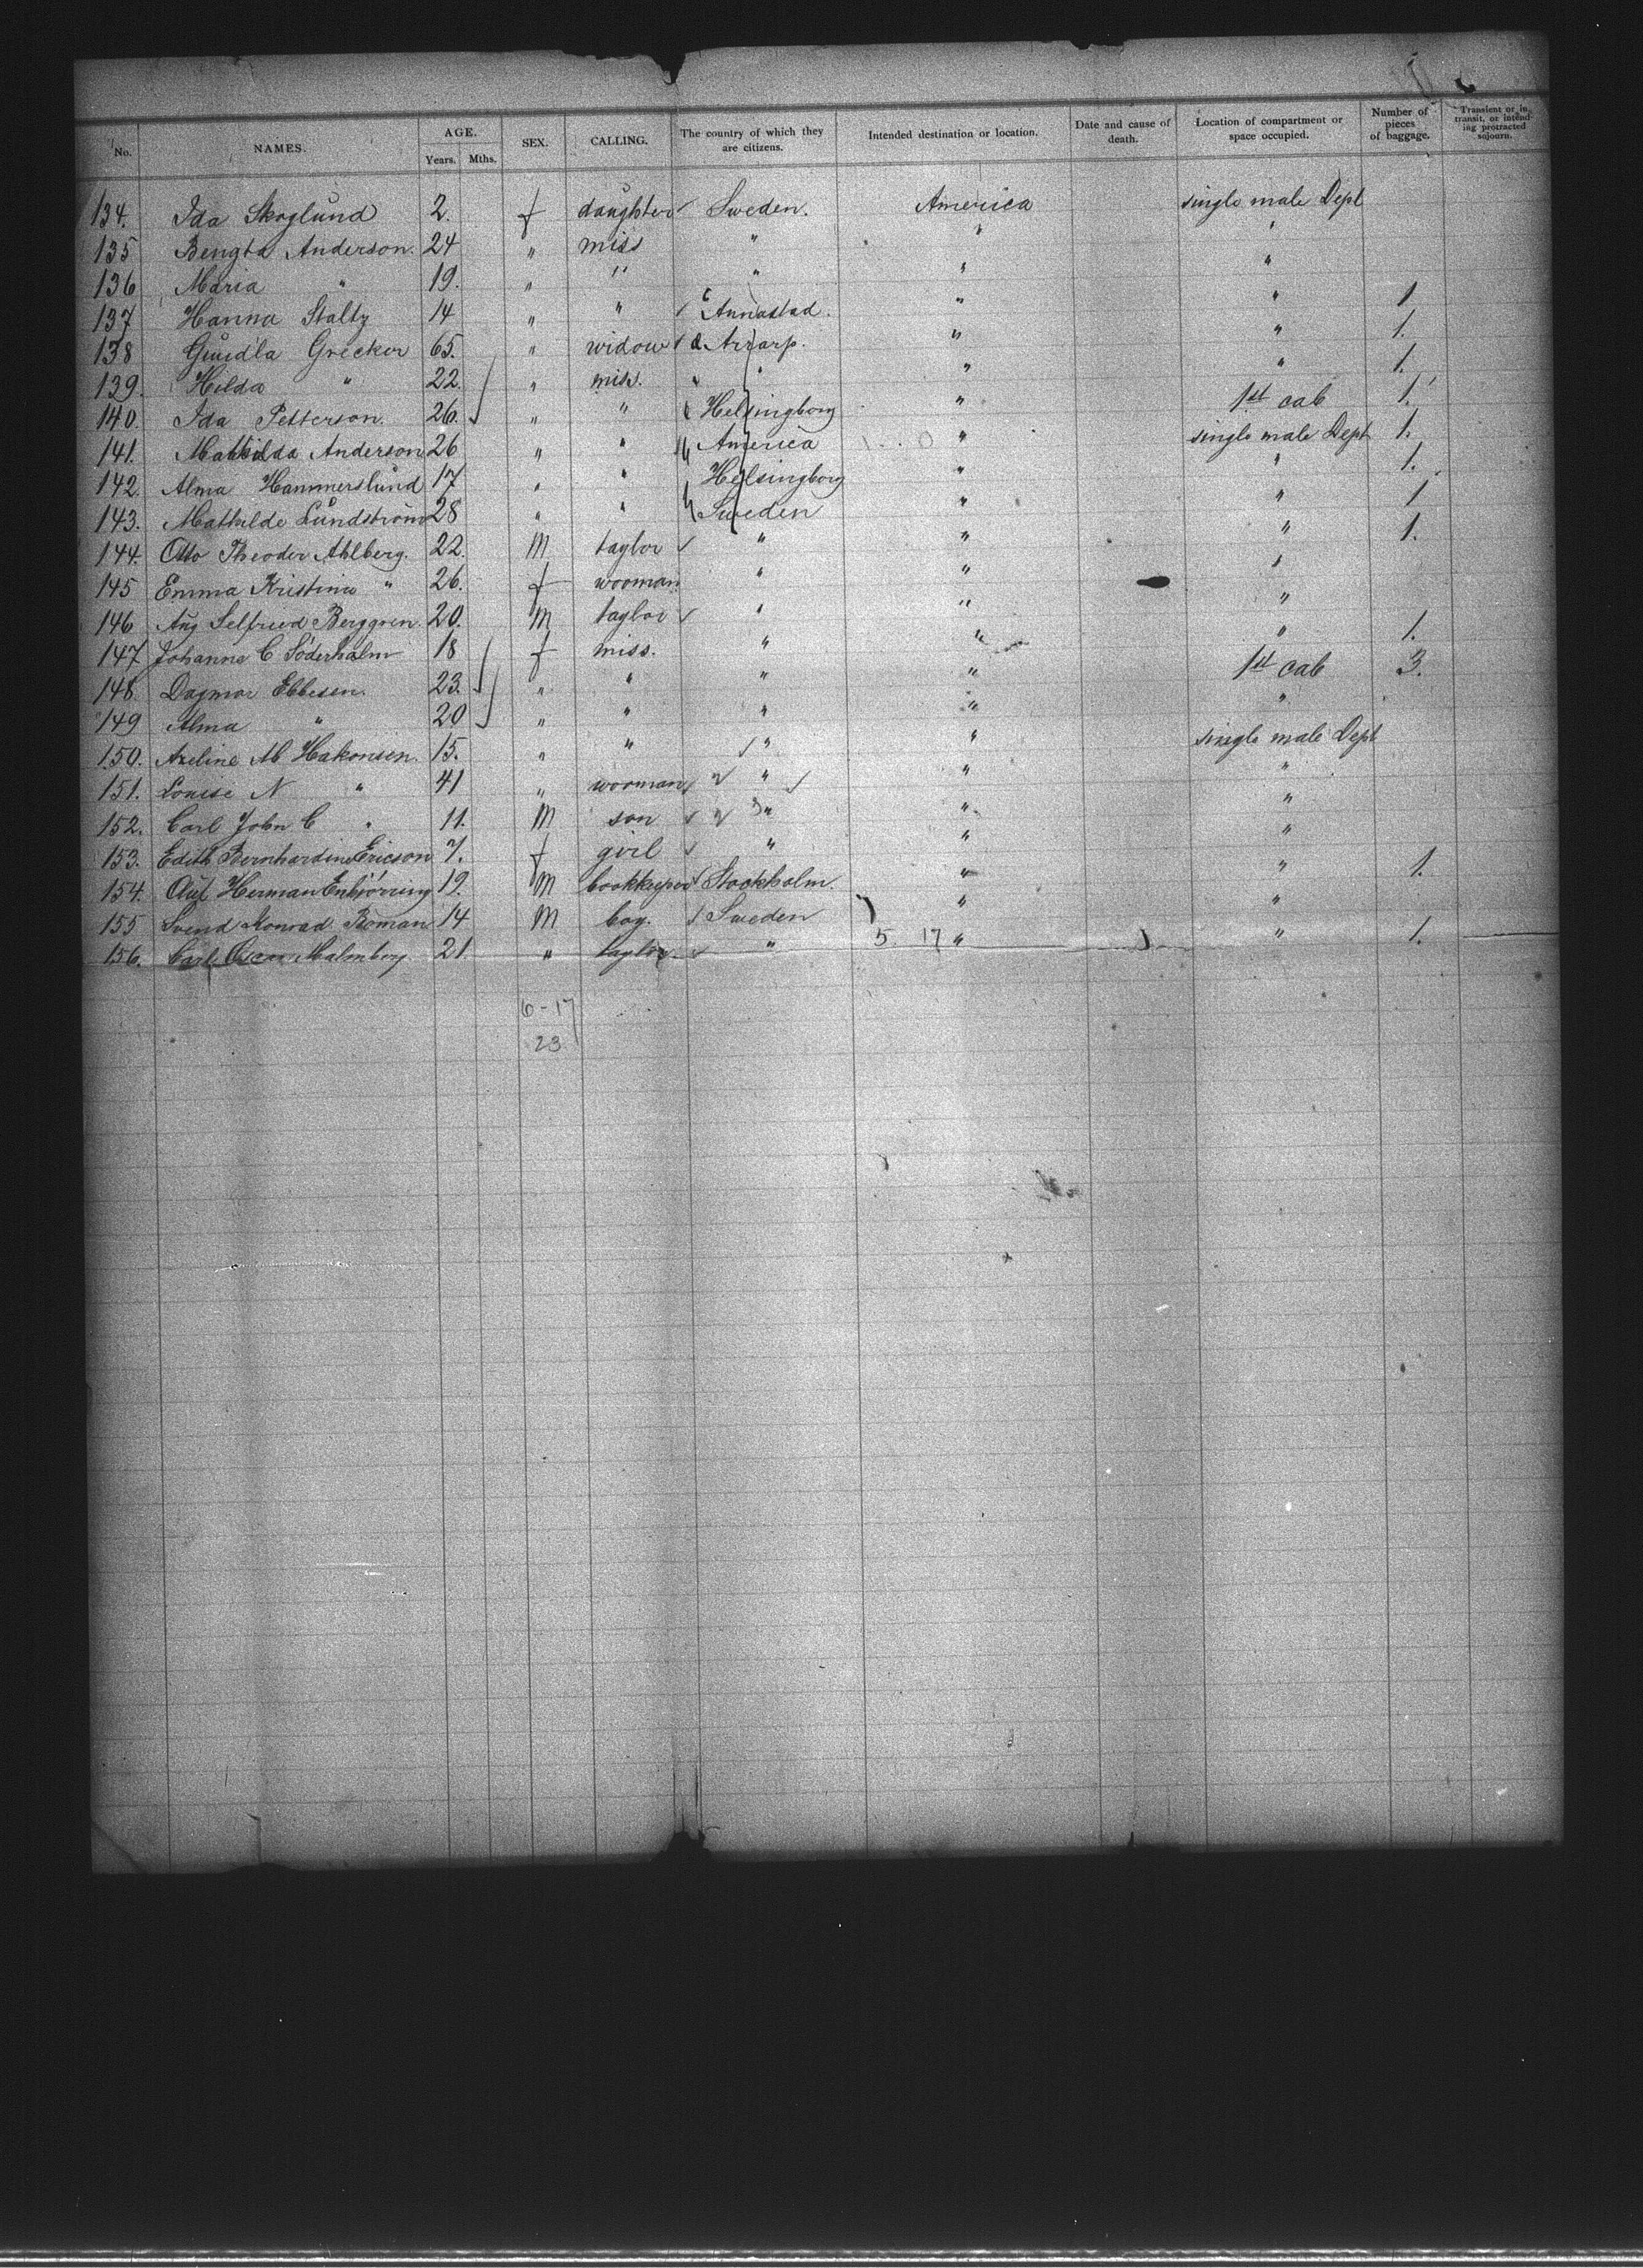 No. NAMES. AGE. Years. Mths. SEX. CALLING. The country of which they are citizens. Intended destination or location. Date and cause of death. Location of compartment or space occupied. Number of pieces of baggage. Transient or in transit, or intending protracted sojourn.
134. Ida Skoglund 2. f daughter Sweden. America single male Dept
135 Bengta Anderson. 24 " miss " " "
136 Maria " 19. " " " " "
137 Hanna Staltz 14 " " Annastad. " " 1
138 Guidla Grecker 65. " widow Arrarp. " " 1.
139. Hilda " 22. " miss. " " " 1.
140. Ida Petterson. 26. " " Helsingborg " 1st cab 1.
141. Mathilda Anderson 26 " " America " single male Dept 1.
142. Alma Hammerslund 17 " " Helsingborg " " 1.
143. Mathilde Lundström 28 " " Sweden " " 1
144. Otto Theodor Ahlberg. 22. M taylor " " " 1.
145 Emma Kristina " 26. f wooman " " "
146 Aug Selfried Berggren. 20. M taylor " " "
147 Johanne C Söderholm 18 f miss. " " " 1.
148. Dagmar Ebbesen. 23. " " " " 1st cab 3.
149 Alma " 20 " " " " "
150. Axeline M Hakonsen. 15. " " " " single male Dept
151. Louise N " 41 " wooman " " "
152. Carl John C " 11. M son " " "
153. Edith Bernhardine Ericson 7. f girl " " "
154. Oluf Herman Enbjörring 19. M bookkeeper Stockholm. " " 1.
155 Svend Konrad Roman 14 M boy. Sweden " "
156. Carl Oscar Malmberg 21. " taylor " 5 17 " " 1.
6-17
23